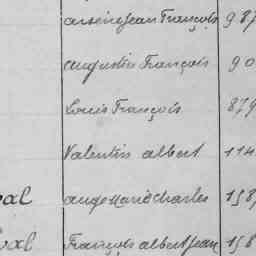 arsène Jean François 987
augustin François 90
Louis François 879
Valentin albert 114
val ange Marie Charles 158
val François albert Jean 158